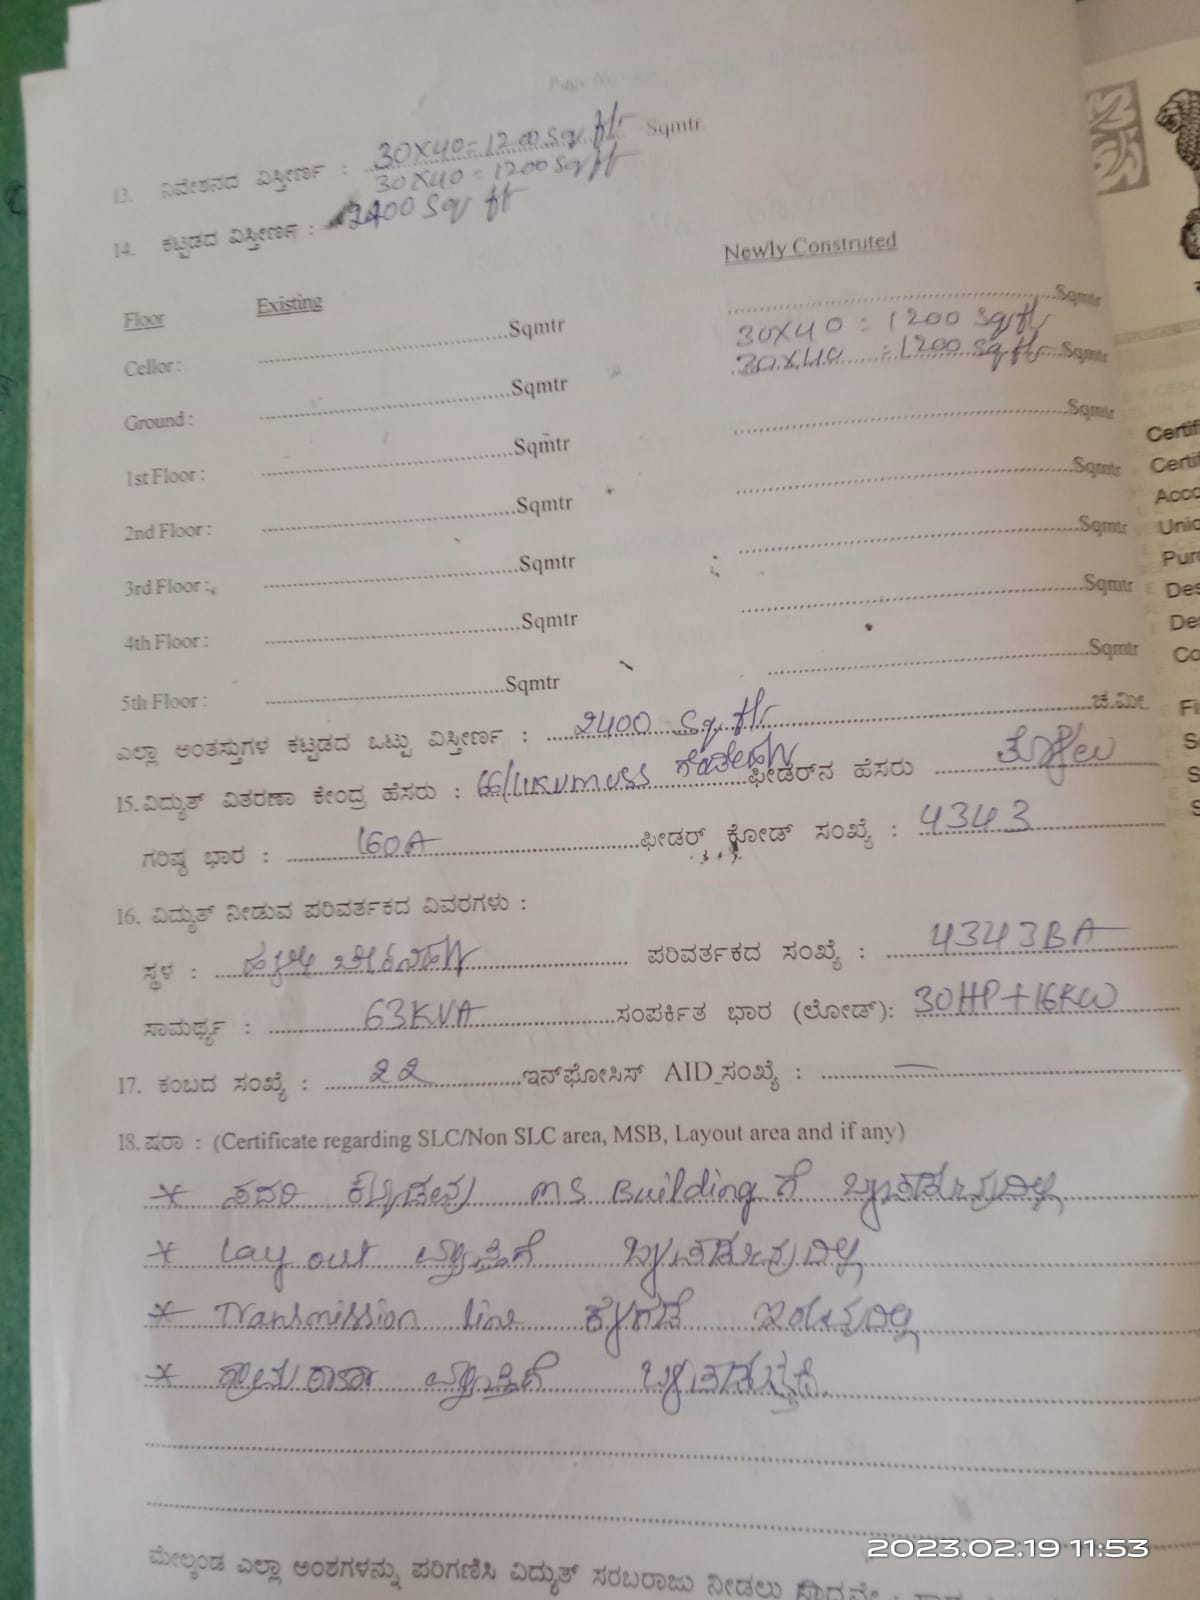 Page No.
13. ನಿವೇಶನದ ವಿಸ್ತೀರ್ಣ : 30X40=1200 Sq. ftr Sqmtr.
30X40=1200 Sq ft
14. ಕಟ್ಟಡದ ವಿಸ್ತೀರ್ಣ : 2400 Sq ft
Floor Existing Newly Constructed
Cellor : Sqmtr Sqmtr
30X40 = 1200 Sqftr
Ground : Sqmtr 30X40 = 1200 sqftr Sqmtr
1st Floor : Sqmtr Sqmtr
2nd Floor : Sqmtr Sqmtr
3rd Floor : Sqmtr Sqmtr
4th Floor : Sqmtr Sqmtr
5th Floor : Sqmtr Sqmtr
ಎಲ್ಲಾ ಅಂತಸ್ತುಗಳ ಕಟ್ಟಡದ ಒಟ್ಟು ವಿಸ್ತೀರ್ಣ : 2400 Sq. ftr ಚ.ಮೀ
15. ವಿದ್ಯುತ್ ವಿತರಣಾ ಕೇಂದ್ರ ಹೆಸರು : 66/11KV MUSS ಫೀಡರ್‌ನ ಹೆಸರು
ಗರಿಷ್ಠ ಭಾರ : 160A ಫೀಡರ್ ಕೋಡ್ ಸಂಖ್ಯೆ : 4343
16. ವಿದ್ಯುತ್ ನೀಡುವ ಪರಿವರ್ತಕದ ವಿವರಗಳು :
ಸ್ಥಳ : ಪರಿವರ್ತಕದ ಸಂಖ್ಯೆ : 4343BA
ಸಾಮರ್ಥ್ಯ : 63KVA ಸಂಪರ್ಕಿತ ಭಾರ (ಲೋಡ್): 30HP+16KW
17. ಕಂಬದ ಸಂಖ್ಯೆ : 22 ಇನ್‌ಫೋಸಿಸ್ AID ಸಂಖ್ಯೆ : —
18. ಷರಾ : (Certificate regarding SLC/Non SLC area, MSB, Layout area and if any)
* ಸದರಿ ಕಟ್ಟಡವು MS Building ಗೆ ಒಳಪಡುವುದಿಲ್ಲ
* Lay out ವ್ಯಾಪ್ತಿಗೆ ಒಳಪಡುವುದಿಲ್ಲ
* Transmission line ಕೆಳಗಡೆ ಇರುವುದಿಲ್ಲ
* ವ್ಯಾಪ್ತಿಗೆ ಒಳಪಡುತ್ತದೆ.
ಮೇಲ್ಕಂಡ ಎಲ್ಲಾ ಅಂಶಗಳನ್ನು ಪರಿಗಣಿಸಿ ವಿದ್ಯುತ್ ಸರಬರಾಜು ನೀಡಲು
2023.02.19 11:53